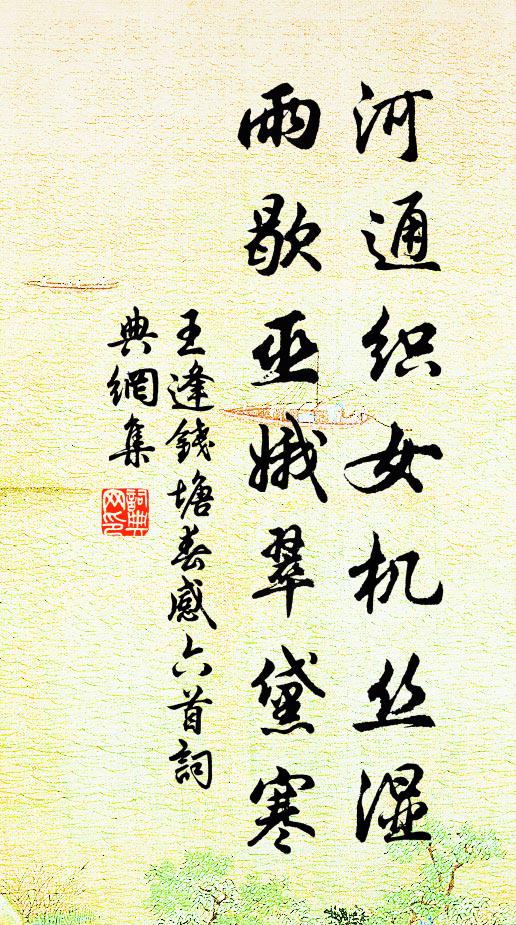 河通织女机丝湿
雨歇巫娥翠黛寒
王逢錢塘春感六首詞
典網集
詞典网印